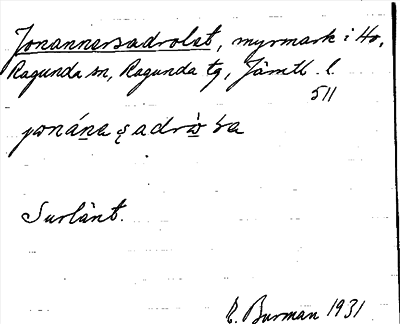 Jonannersadrolet, myrmark i Ho,
Ragunda sn, Ragunda tg, Jämtl. l.
511
Surlänt.
E. Burman 1931